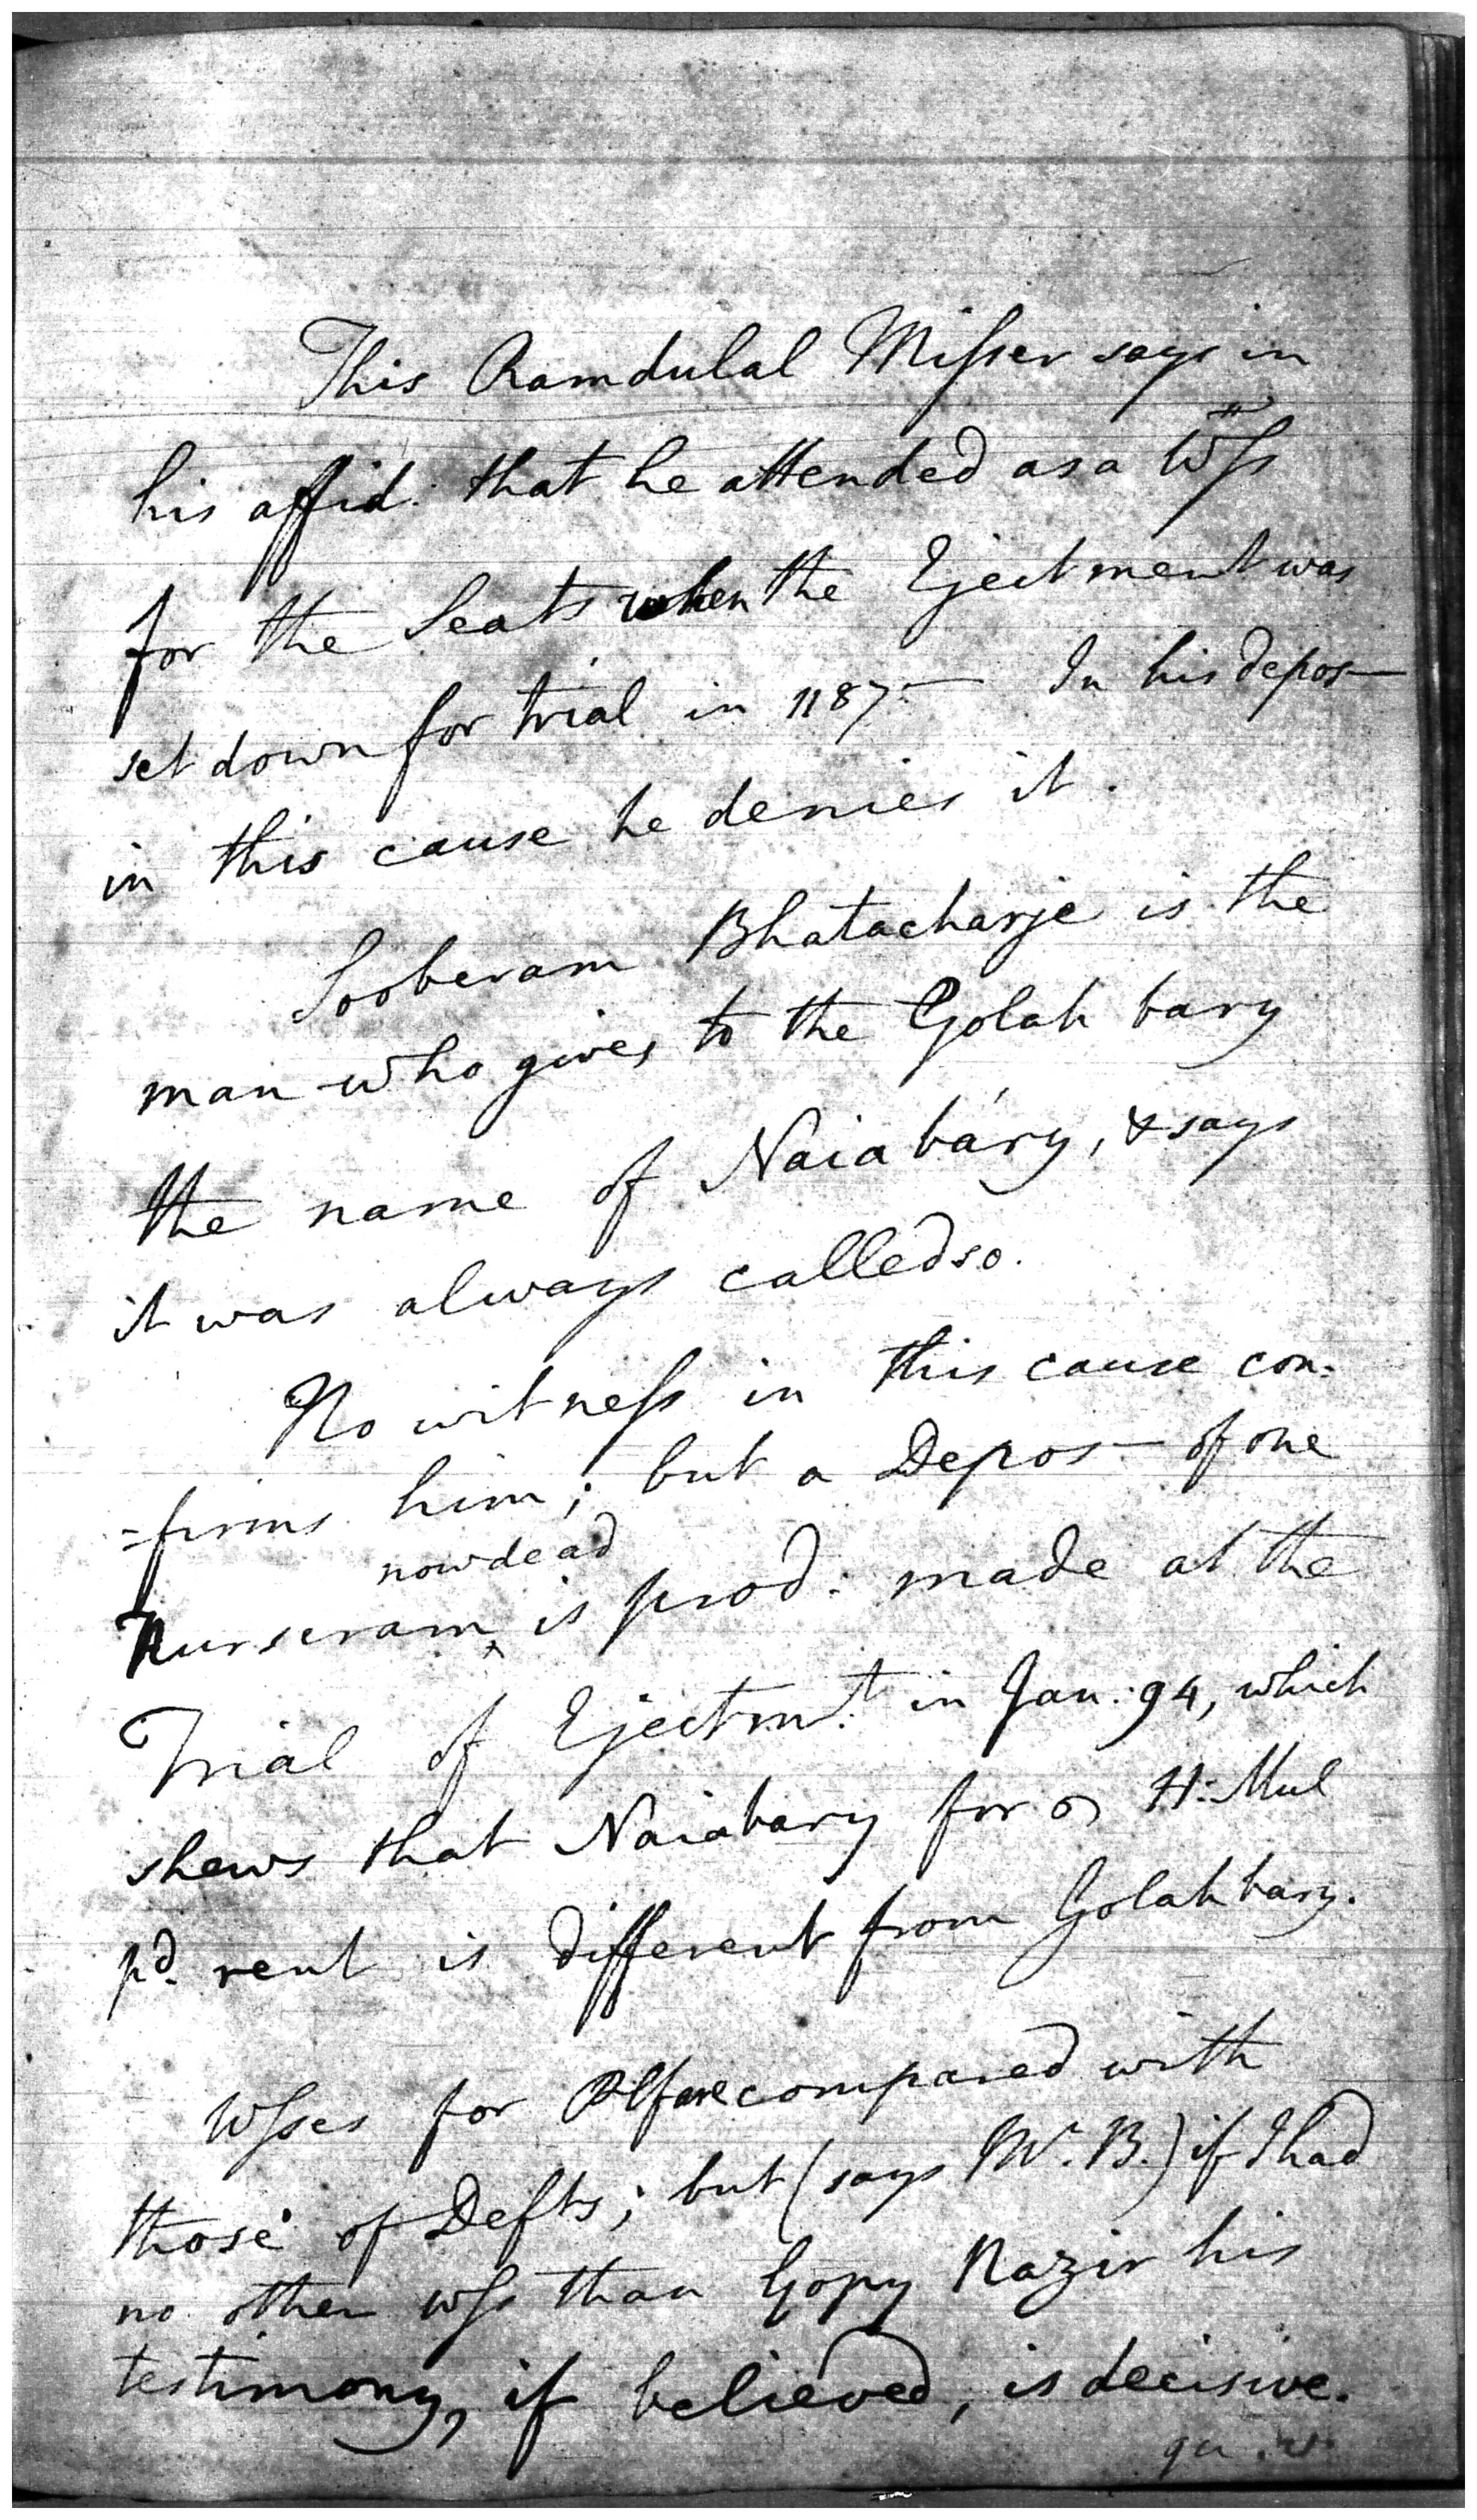 This Ramdulal Misser says in
his affid: that he attended as a Wss
for the Seats when the Ejectment was
set down for trial in 1187– In his depos–
in this cause he denies it.
Sooberam Bhatacharje is the
man who gives to the Golah bary
the name of Naiabáry, & says
it was always called so.
No witness in this cause con:
=firms him; but a Depos– of one
now dead
Nurseram ‸ is prod: made at the
Trial of Ejectmt. in Jan: 94, which
shews that Naiabary for H: Mul
pd. rent is different from Golahbary.
Wsses for compared with
those of Defts; but (says Mr. B.) if I had
no other wss than Gopy Nazir his
testimony, if believed, is decisive.